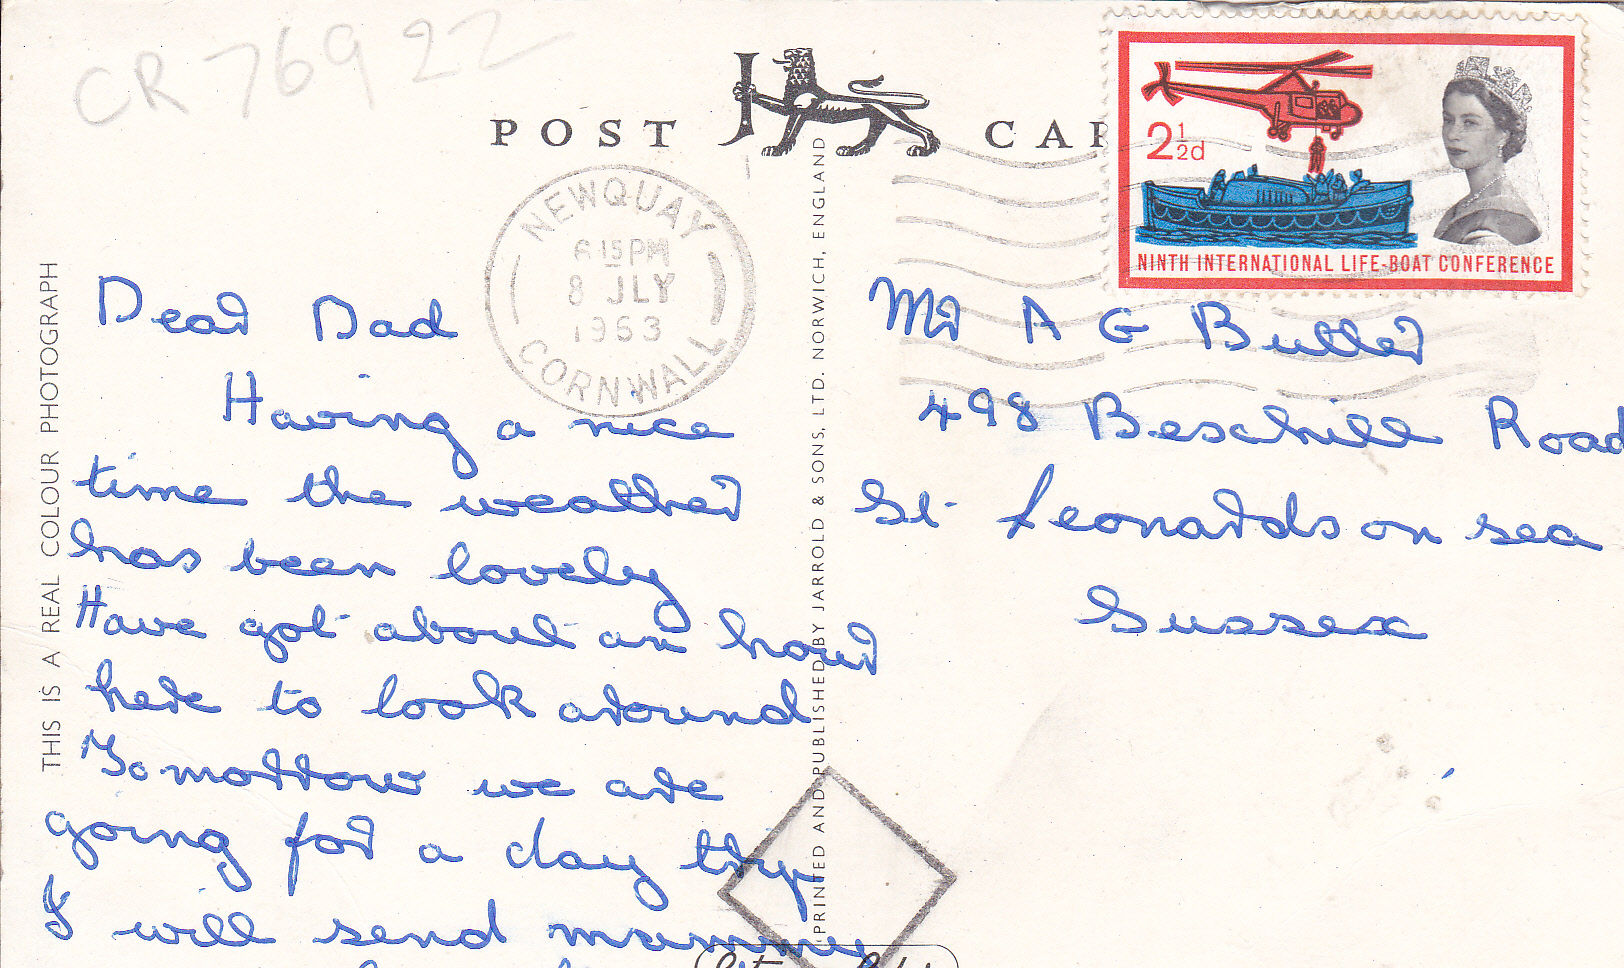 CR 76922
POST CAR
2½d
NINTH INTERNATIONAL LIFE-BOAT CONFERENCE
NEWQUAY
6 15 PM
8 JLY
1963
CORNWALL
THIS IS A REAL COLOUR PHOTOGRAPH
Dear Dad
Having a nice
time the weather
has been lovely
Have got about an hour
here to look around
Tomorrow we are
going for a day trip
I will send mummy
PRINTED AND PUBLISHED BY JARROLD & SONS, LTD. NORWICH, ENGLAND
Mr A G Butler
498 Bexchill Road
St Leonards on sea
Sussex